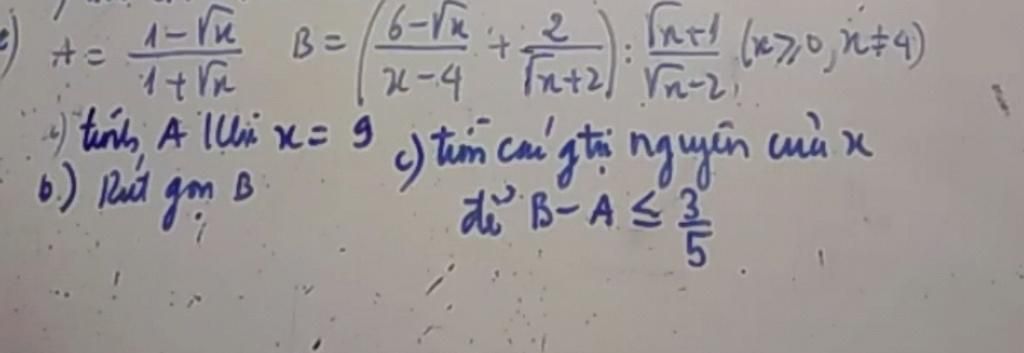 A = \frac{1-\sqrt{x}}{1+\sqrt{x}} B = (\frac{6-\sqrt{x}}{x-4} + \frac{2}{\sqrt{x}+2}) : \frac{\sqrt{x}+1}{\sqrt{x}-2} (x ≥ 0, x ≠ 4)
a) tính A khi x = 9
b.) Rút gọn B
c) tìm các gtrị nguyên của x
để B - A ≤ \frac{3}{5}